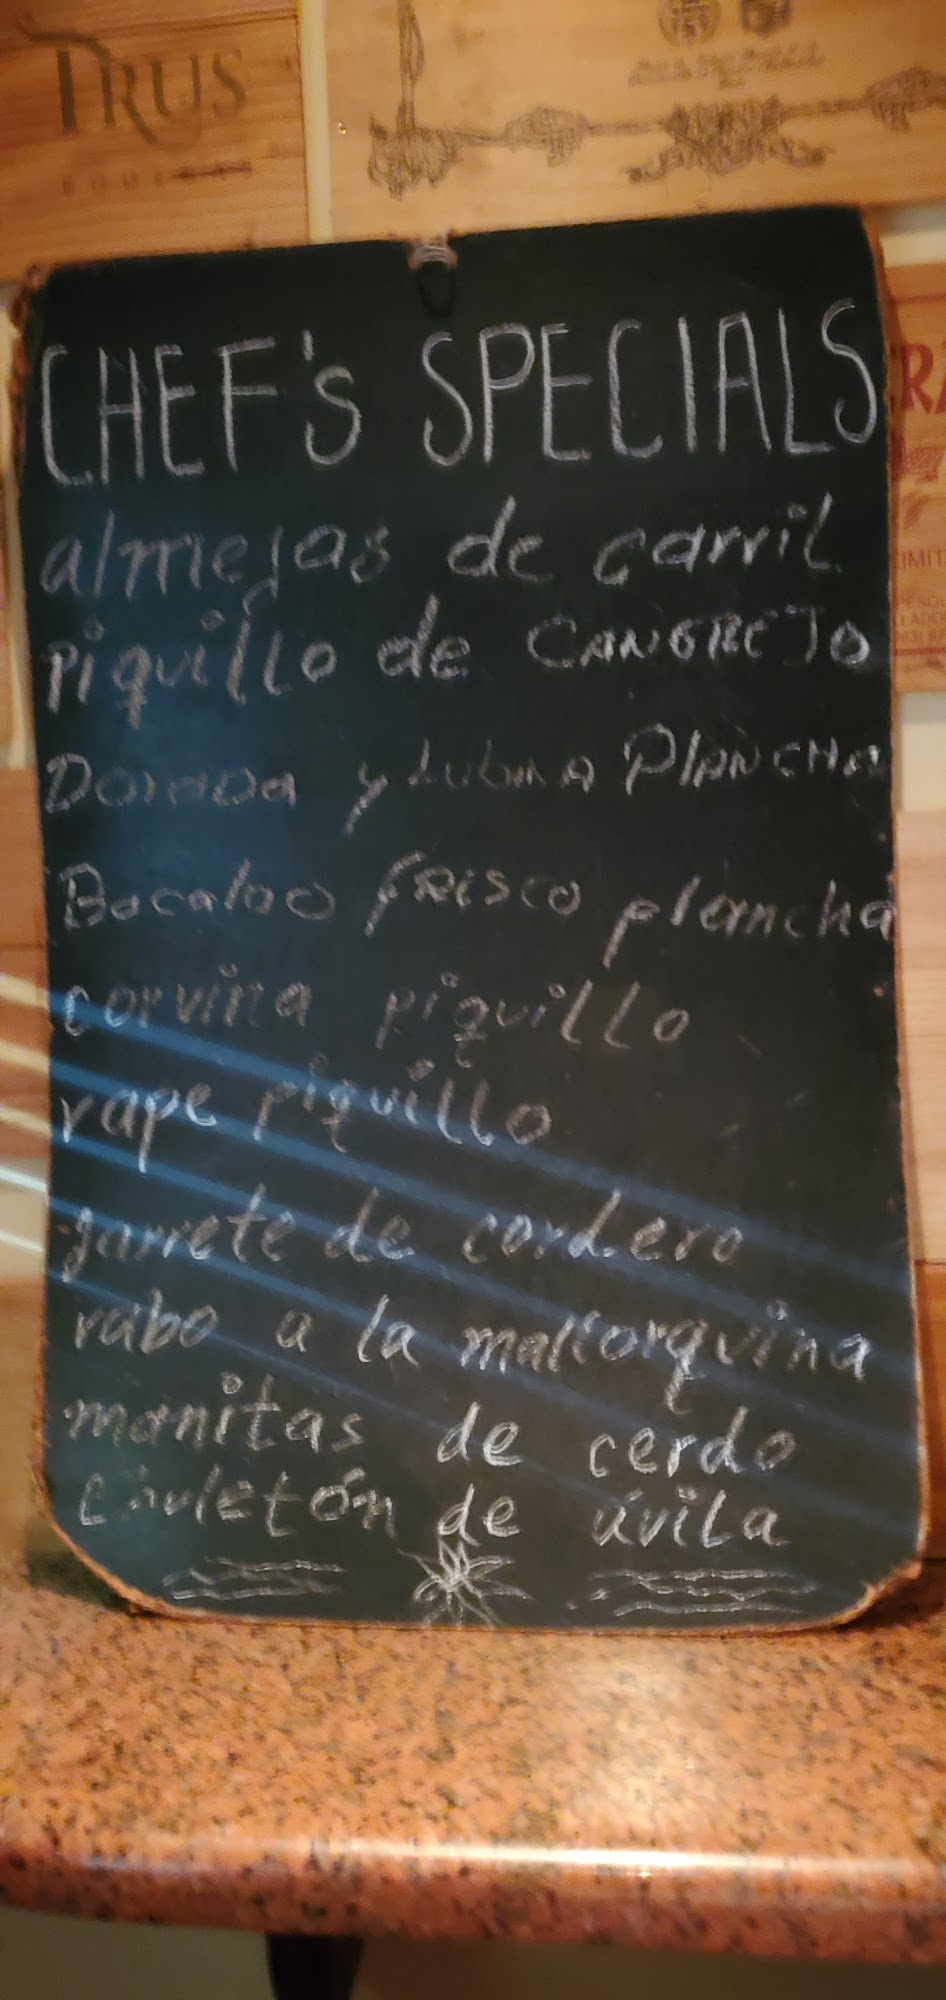 TRUS
CHEF's SPECIALS
almejas de carril
piquillo de CANGREJO
Dorada y Lubina PLANCHA
Bacalao frisco plancha
corvina piquillo
rape piquillo
garrete de cordero
rabo a la mallorquina
manitas de cerdo
Chuletón de ávila